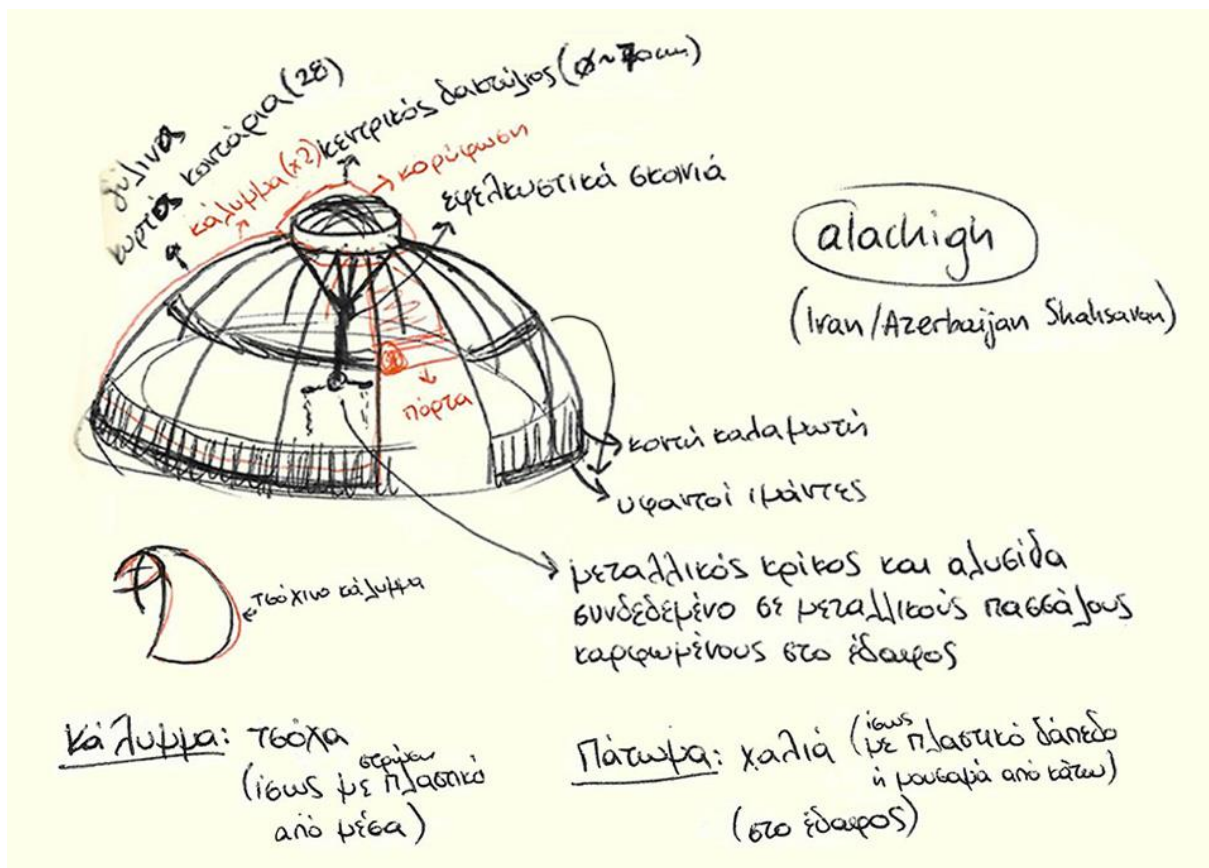 ξύλινα
κυρτά κοντάρια (28)
κάλυμμα (x2)
κεντρικός δακτύλιος (ø~70cm)
κορύφωση
εφελκυστικά σκοινιά
alachigh
(Iran/Azerbaijan Shahsavan)
πόρτα
κοντή καλαμωτή
υφαντοί ιμάντες
μεταλλικός κρίκος και αλυσίδα
συνδεδεμένο σε μεταλλικούς πασσάλους
καρφωμένους στο έδαφος
τσόχινο κάλυμμα
Κάλυμμα: τσόχα
(ίσως με στρώση πλαστικό
από μέσα)
Πάτωμα: χαλιά (ίσως με πλαστικό δάπεδο
ή μουσαμά από κάτω)
(στο έδαφος)